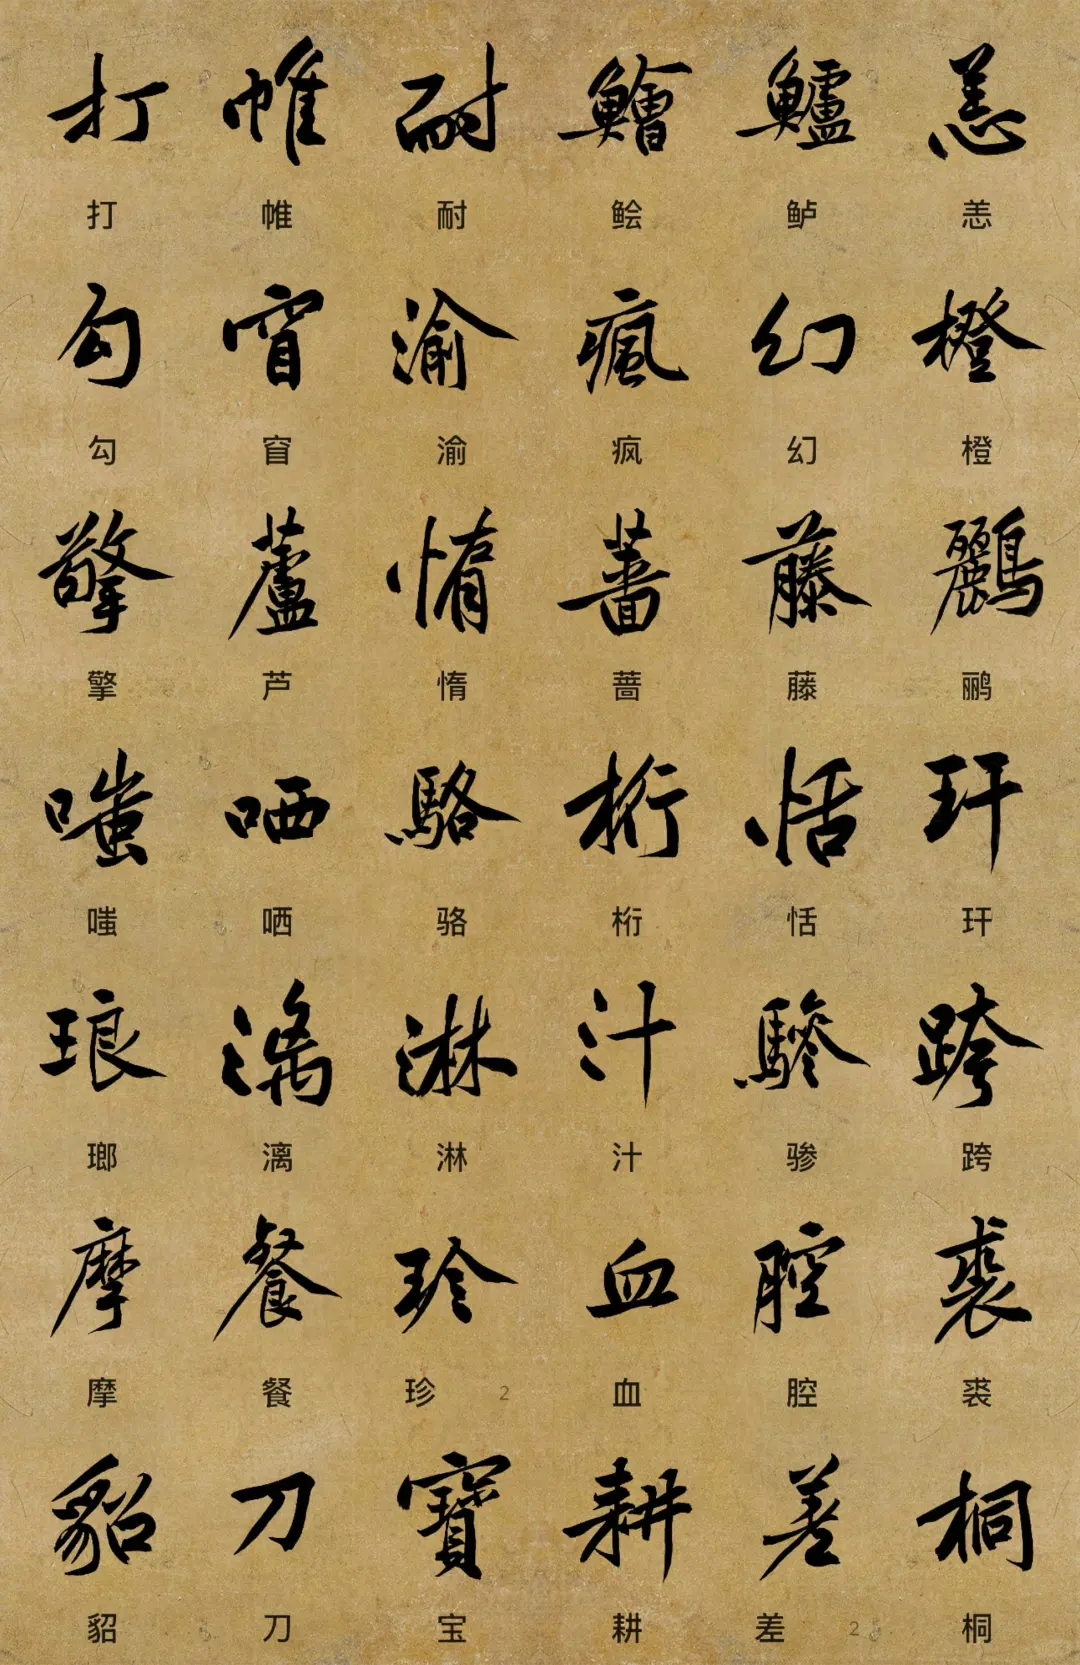 打 帷 耐 鱠 鱸 恙
打 帷 耐 鲙 鲈 恙
勾 窅 渝 瘋 幻 橙
勾 窅 渝 疯 幻 橙
擎 蘆 惰 薔 藤 鸝
擎 芦 惰 蔷 藤 鹂
嗤 哂 駱 桁 恬 玕
嗤 哂 骆 桁 恬 玕
琅 漓 淋 汁 驂 跨
瑯 漓 淋 汁 骖 跨
摩 餐 珍 血 腔 裘
摩 餐 珍 2 血 腔 裘
貂 刀 寶 耕 差 桐
貂 刀 宝 耕 差 2 桐